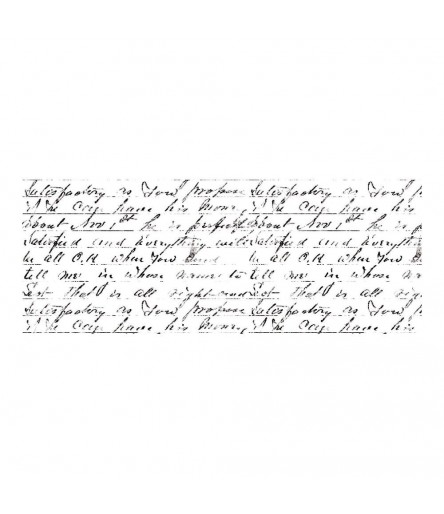 satisfactory as You propose satisfactory as You
if he can have his money if he can have his
about Nov 1st he is perfectly about Nov 1st he is
satisfied and everything will satisfied and everything
be all O.K when You send be all O.K when You
tell me in whose name to tell me in whose
that is all right and that is all
satisfactory as You propose satisfactory as You
if he can have his money if he can have his